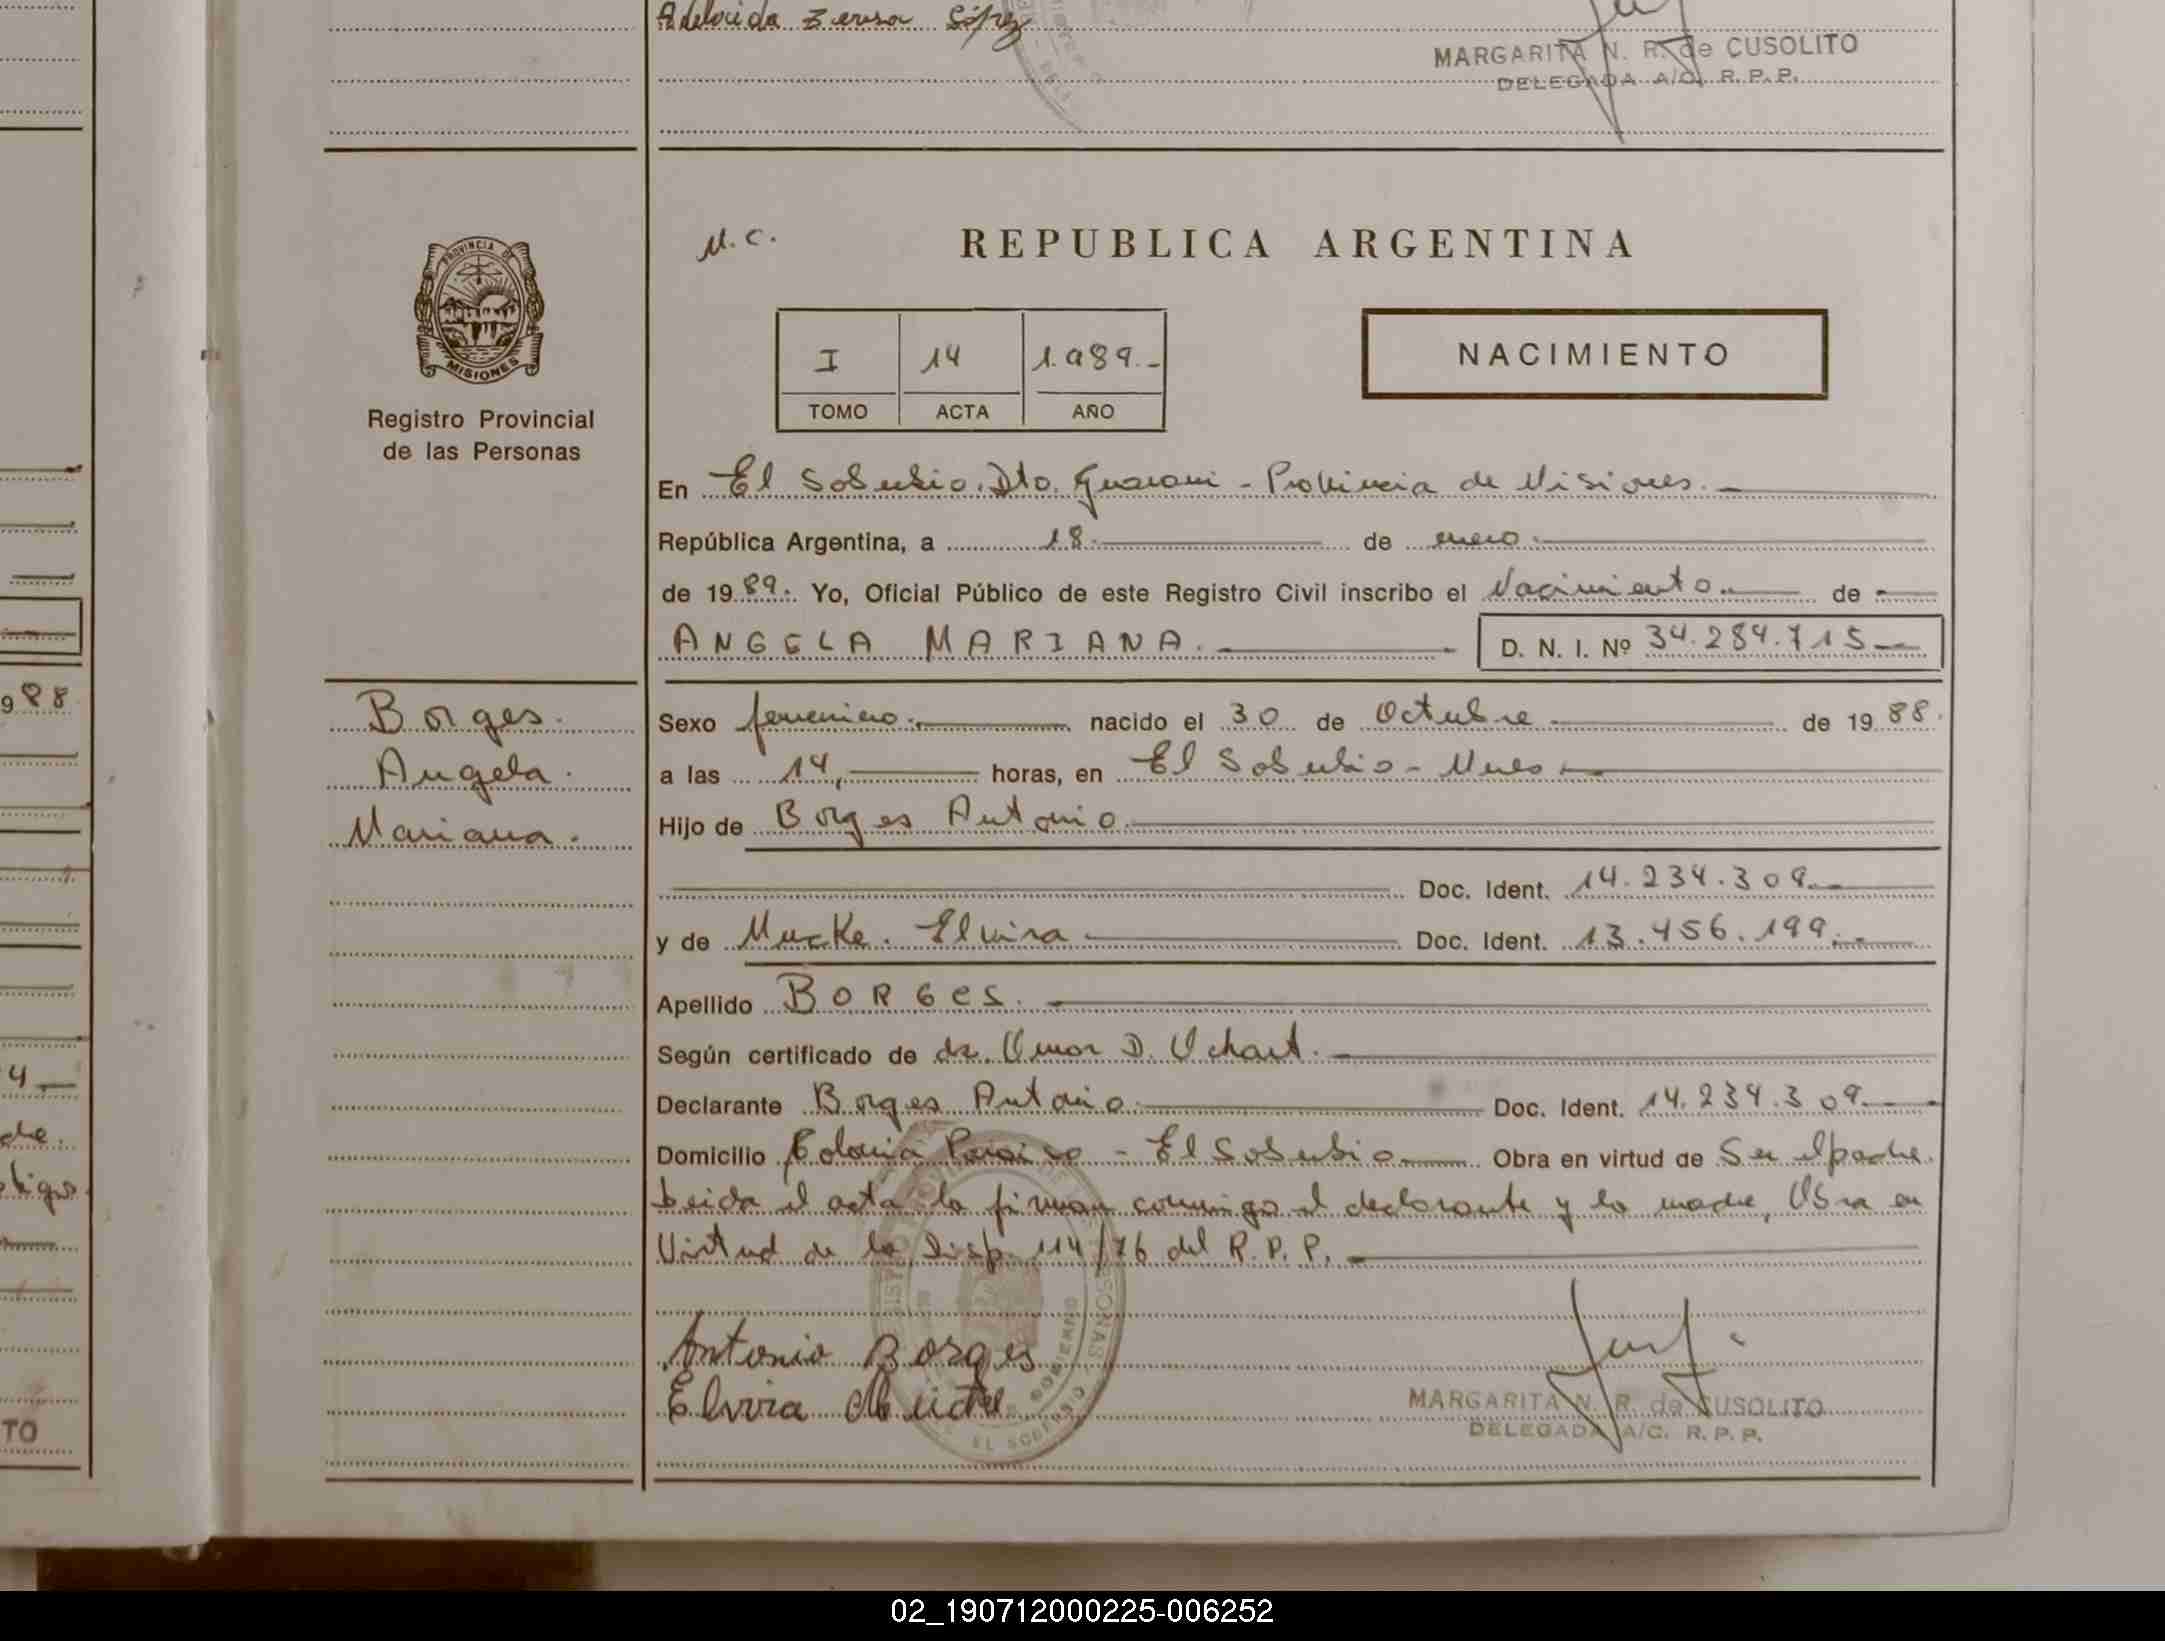 Adelaida Teresa López
MARGARITA N. R. de CUSOLITO
DELEGADA A/C. R. P. P.
PROVINCIA DE
MISIONES
Registro Provincial
de las Personas
N.C.
REPUBLICA ARGENTINA
I 14 1.989.-
TOMO ACTA AÑO
NACIMIENTO
En El Soberbio. Dto. Guarani - Provincia de Misiones.-
República Argentina, a 18. de enero.
de 1989. Yo, Oficial Público de este Registro Civil inscribo el Nacimiento. de
ANGELA MARIANA. D. N. I. Nº 34.284.715
Borges.
Angela.
Mariana.
Sexo femenino. nacido el 30 de Octubre de 1988.
a las 14, horas, en El Soberbio - Mnes
Hijo de Borges Antonio.
Doc. Ident. 14.234.309.
y de Mucke. Elvira Doc. Ident. 13.456.199.-
Apellido BORGES.
Según certificado de dr. Omar D.
Declarante Borges Antonio. Doc. Ident. 14.234.309.
Domicilio Colonia Paraiso - El Soberbio Obra en virtud de Ser el padre.
Leida el acta la firman conmigo el declarante y la madre, Obra en
Virtud de la Disp. 114/76 del R. P. P.
Antonio Borges
Elvira
EL SOBERBIO
MARGARITA N. R. de CUSOLITO
DELEGADA A/C. R. P. P.
988
4
TO
02_190712000225-006252